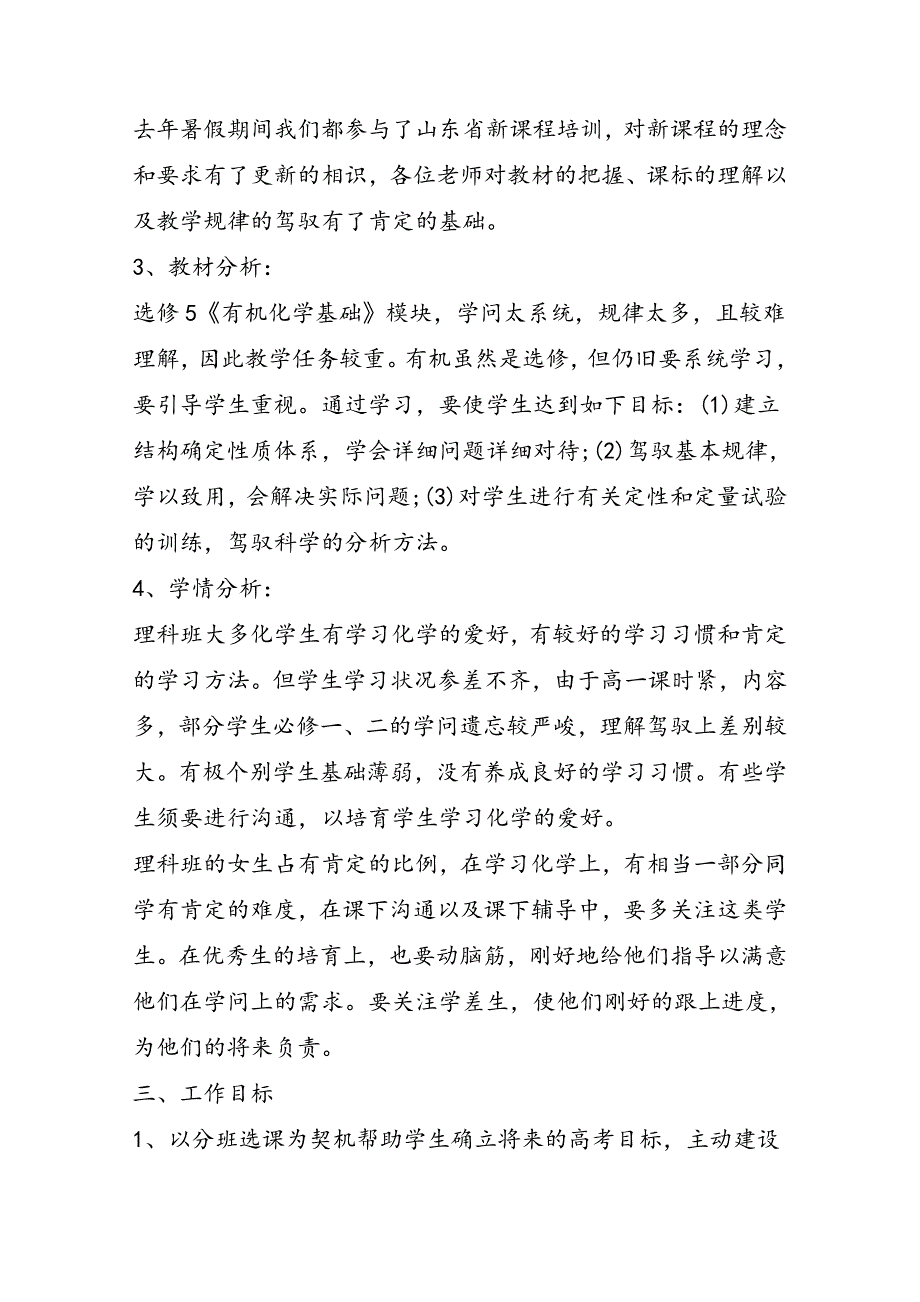 去年暑假期间我们都参与了山东省新课程培训，对新课程的理念
和要求有了更新的相识，各位老师对教材的把握、课标的理解以
及教学规律的驾驭有了肯定的基础。
3、教材分析：
选修5《有机化学基础》模块，学问太系统，规律太多，且较难
理解，因此教学任务较重。有机虽然是选修，但仍旧要系统学习，
要引导学生重视。通过学习，要使学生达到如下目标：(1)建立
结构确定性质体系，学会详细问题详细对待;(2)驾驭基本规律，
学以致用，会解决实际问题;(3)对学生进行有关定性和定量试验
的训练，驾驭科学的分析方法。
4、学情分析：
理科班大多化学生有学习化学的爱好，有较好的学习习惯和肯定
的学习方法。但学生学习状况参差不齐，由于高一课时紧，内容
多，部分学生必修一、二的学问遗忘较严峻，理解驾驭上差别较
大。有极个别学生基础薄弱，没有养成良好的学习习惯。有些学
生须要进行沟通，以培育学生学习化学的爱好。
理科班的女生占有肯定的比例，在学习化学上，有相当一部分同
学有肯定的难度，在课下沟通以及课下辅导中，要多关注这类学
生。在优秀生的培育上，也要动脑筋，刚好地给他们指导以满意
他们在学问上的需求。要关注学差生，使他们刚好的跟上进度，
为他们的将来负责。
三、工作目标
1、以分班选课为契机帮助学生确立将来的高考目标，主动建设